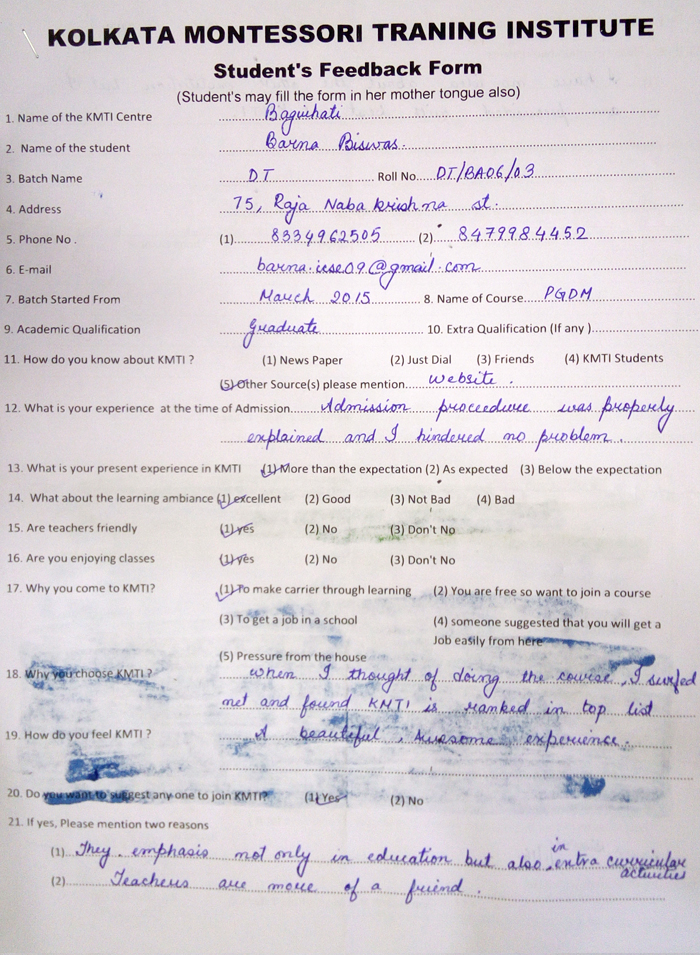 KOLKATA MONTESSORI TRANING INSTITUTE
Student's Feedback Form
(Student's may fill the form in her mother tongue also)
1. Name of the KMTI Centre Baguihati
2. Name of the student Barna Biswas.
3. Batch Name DT Roll No. DT/BA06/03
4. Address 75, Raja Naba krishna st.
5. Phone No. (1) 8334962505 (2) 8479984452
6. E-mail barna.icse09@gmail.com
7. Batch Started From March 2015 8. Name of Course PGDM
9. Academic Qualification graduate 10. Extra Qualification (If any)
11. How do you know about KMTI ? (1) News Paper (2) Just Dial (3) Friends (4) KMTI Students
(5) Other Source(s) please mention website.
12. What is your experience at the time of Admission Admission proceedure was properly
explained and I hindered no problem.
13. What is your present experience in KMTI (1) More than the expectation (2) As expected (3) Below the expectation
14. What about the learning ambiance (1) excellent (2) Good (3) Not Bad (4) Bad
15. Are teachers friendly (1) yes (2) No (3) Don't No
16. Are you enjoying classes (1) yes (2) No (3) Don't No
17. Why you come to KMTI? (1) To make carrier through learning (2) You are free so want to join a course
(3) To get a job in a school (4) someone suggested that you will get a
Job easily from here
(5) Pressure from the house
18. Why you choose KMTI ? when I thought of doing the course, I surfed
net and found KMTI is ranked in top list
19. How do you feel KMTI ? A beautiful, Awesome experience.
20. Do you want to suggest any one to join KMTI? (1) Yes (2) No
21. If yes, Please mention two reasons
(1) They emphasis not only in education but also in extra curricular
activities
(2) Teachers are more of a friend.